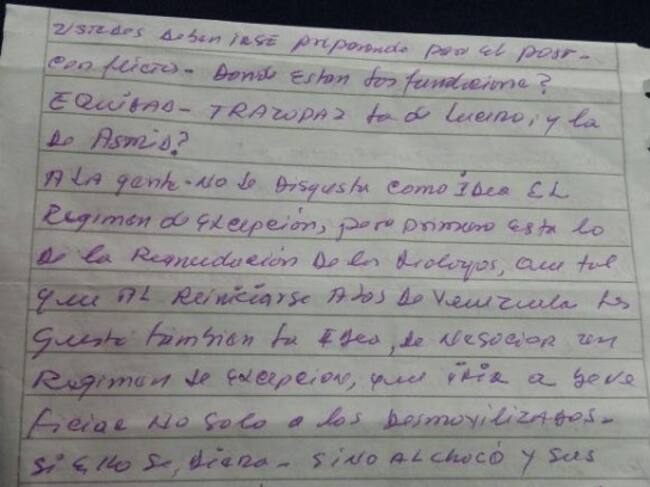 Ustedes deben irse preparando para el post-
conflicto - Donde estan las fundacione?
EQUIDAD - TRAZOPAZ la de Lucero, y la
de Asmid?
A LA gente - No le Disgusta como Idea EL
Regimen de Excepción, pero primero esta lo
De la Reanudación De los Dialogos, que tal
que AL Reiniciarse A los De Venezuela les
guste tambien la Idea, de Negociar un
Regimen de Excepcion, que iria a bene
ficiar No Solo a los Desmovilizados -
si ello se, diera - SINO AL CHOCÓ y sus